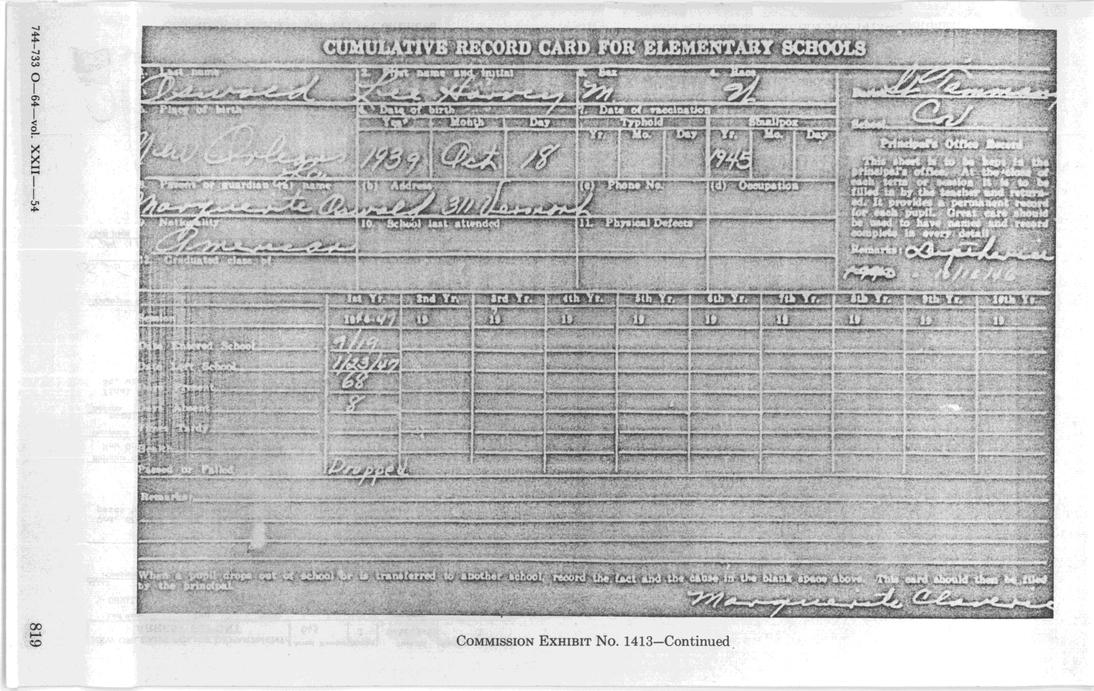 744-733 O—64—vol. XXII——54
CUMULATIVE RECORD CARD FOR ELEMENTARY SCHOOLS
1. Last name 2. First name and initial 3. Sex 4. Race
Oswald Lee Harvey M W St. Tammany
Place of birth Date of birth 7. Date of vaccination
Year Month Day Typhoid Smallpox School
Yr. Mo. Day Yr. Mo. Day Cov
New Orleans 1939 Oct 18 1945
La
Principal's Office Record
This sheet is to be kept in the
principal's office. At the close of
each term or session it is to be
filled in by the teacher and return-
ed. It provides a permanent record
for each pupil. Great care should
be used to have names and record
complete in every detail
Parents or guardian (a) name (b) Address (c) Phone No. (d) Occupation
Marguerite Oswald 311 Vermont
Nationality 10. School last attended 11. Physical Defects
American
Remarks: Diptheria
10/18/46
12. Graduated class of
1st Yr. 2nd Yr. 3rd Yr. 4th Yr. 5th Yr. 6th Yr. 7th Yr. 8th Yr. 9th Yr. 10th Yr.
1946-47 19 19 19 19 19 19 19 19 19
Date Entered School 9/19
Date Left School 1/23/47
68
Absent 8
Health
Passed or Failed Dropped
Remarks:
When a pupil drops out of school or is transferred to another school, record the fact and the cause in the blank space above. This card should then be filed
by the principal.
Marguerite Claverie
819
COMMISSION EXHIBIT No. 1413—Continued